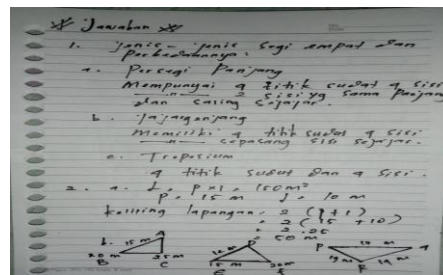 * Jawaban *
1. Jenis - jenis segi empat dan
perbedaannya.
a. Persegi Panjang
Mempunyai 4 titik sudut 4 sisi
2 sisi yg sama panjang
dan saling sejajar.
b. Jajargenjang
Memiliki 4 titik sudut 4 sisi
sepasang sisi sejajar.
c. Trapesium
4 titik sudut dan 4 sisi.
2. a. L = p x l = 150 m²
p = 15 m l = 10 m
keliling lapangan = 2 (p + l)
= 2 (15 + 10)
= 2 . 25
= 50 m
b.
15 m A
20 m 25 m
B C
D
15 m
P R